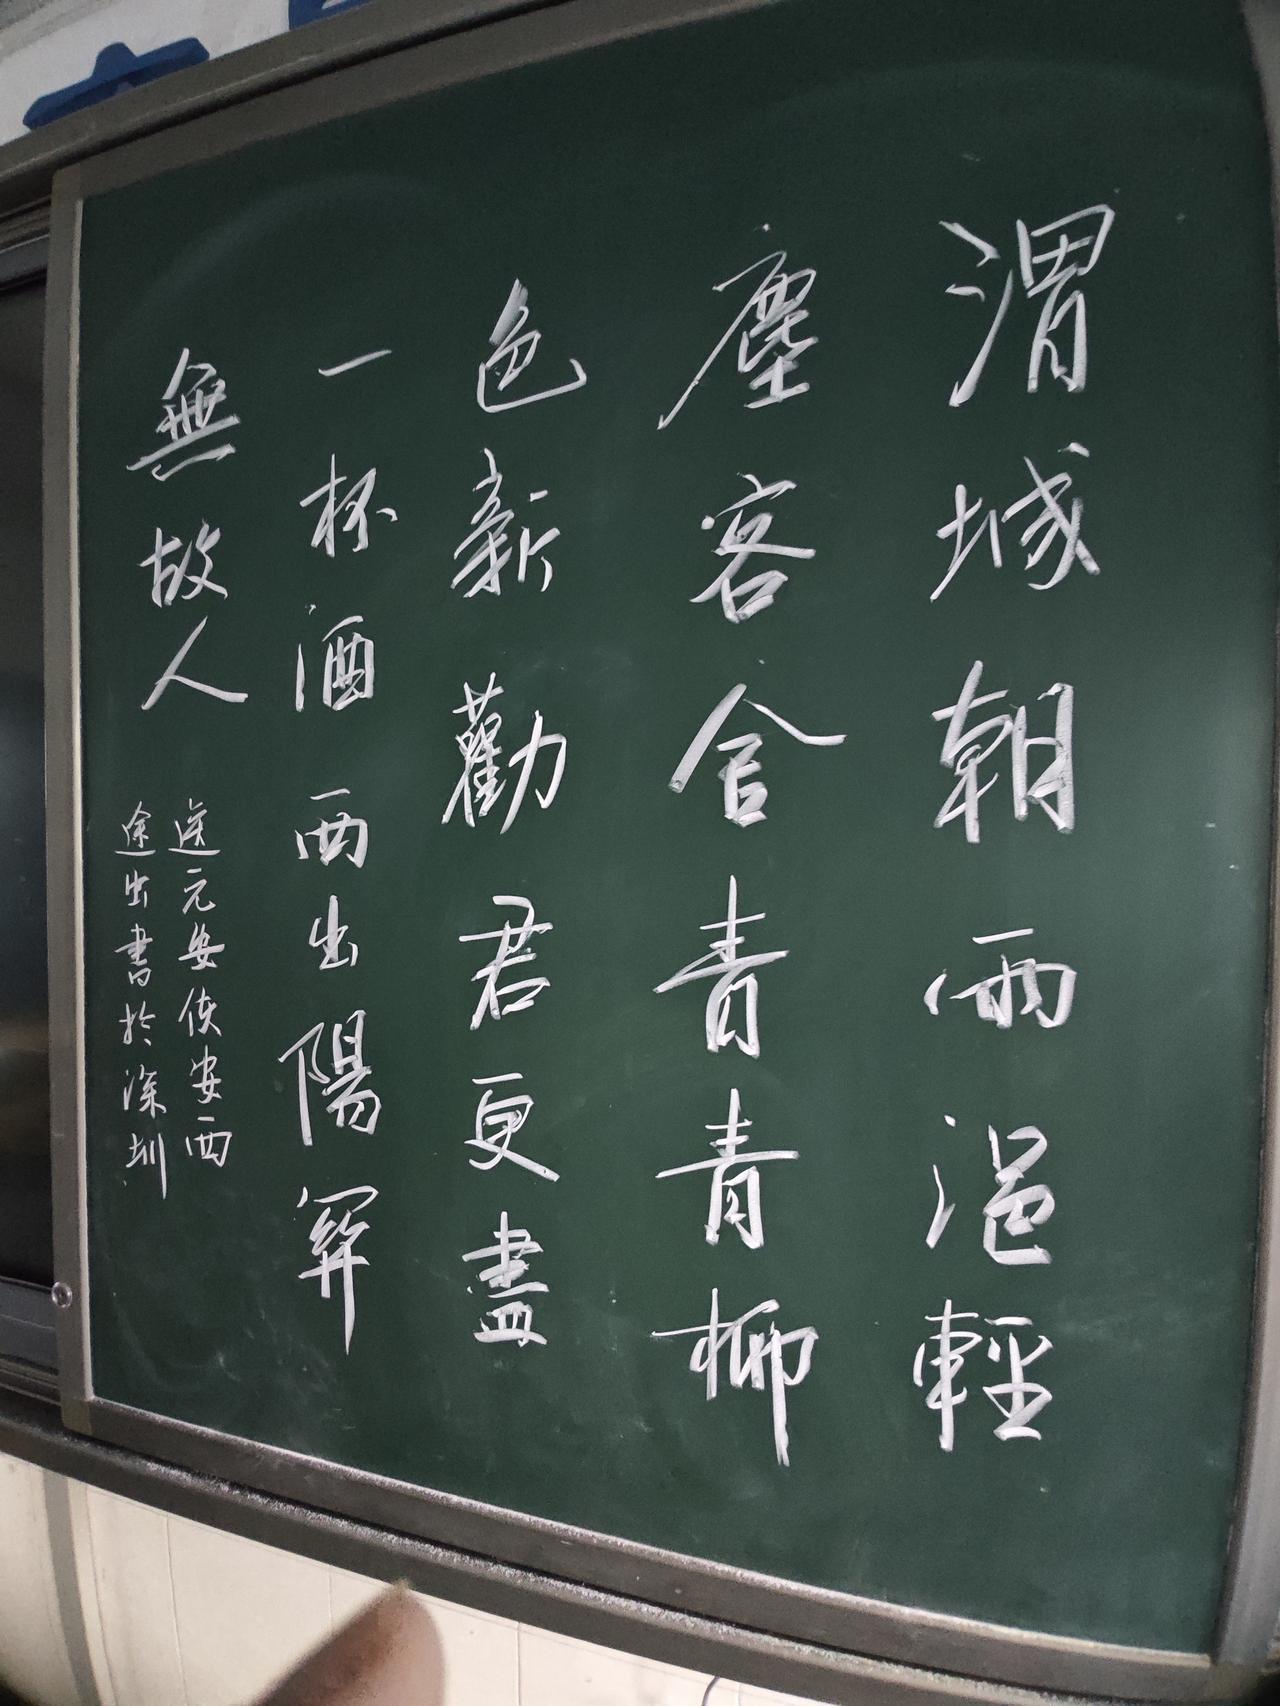 渭城朝雨浥輕
塵客舍青青柳
色新勸君更盡
一杯酒西出陽關
無故人
送元安使安西
途出書於深圳